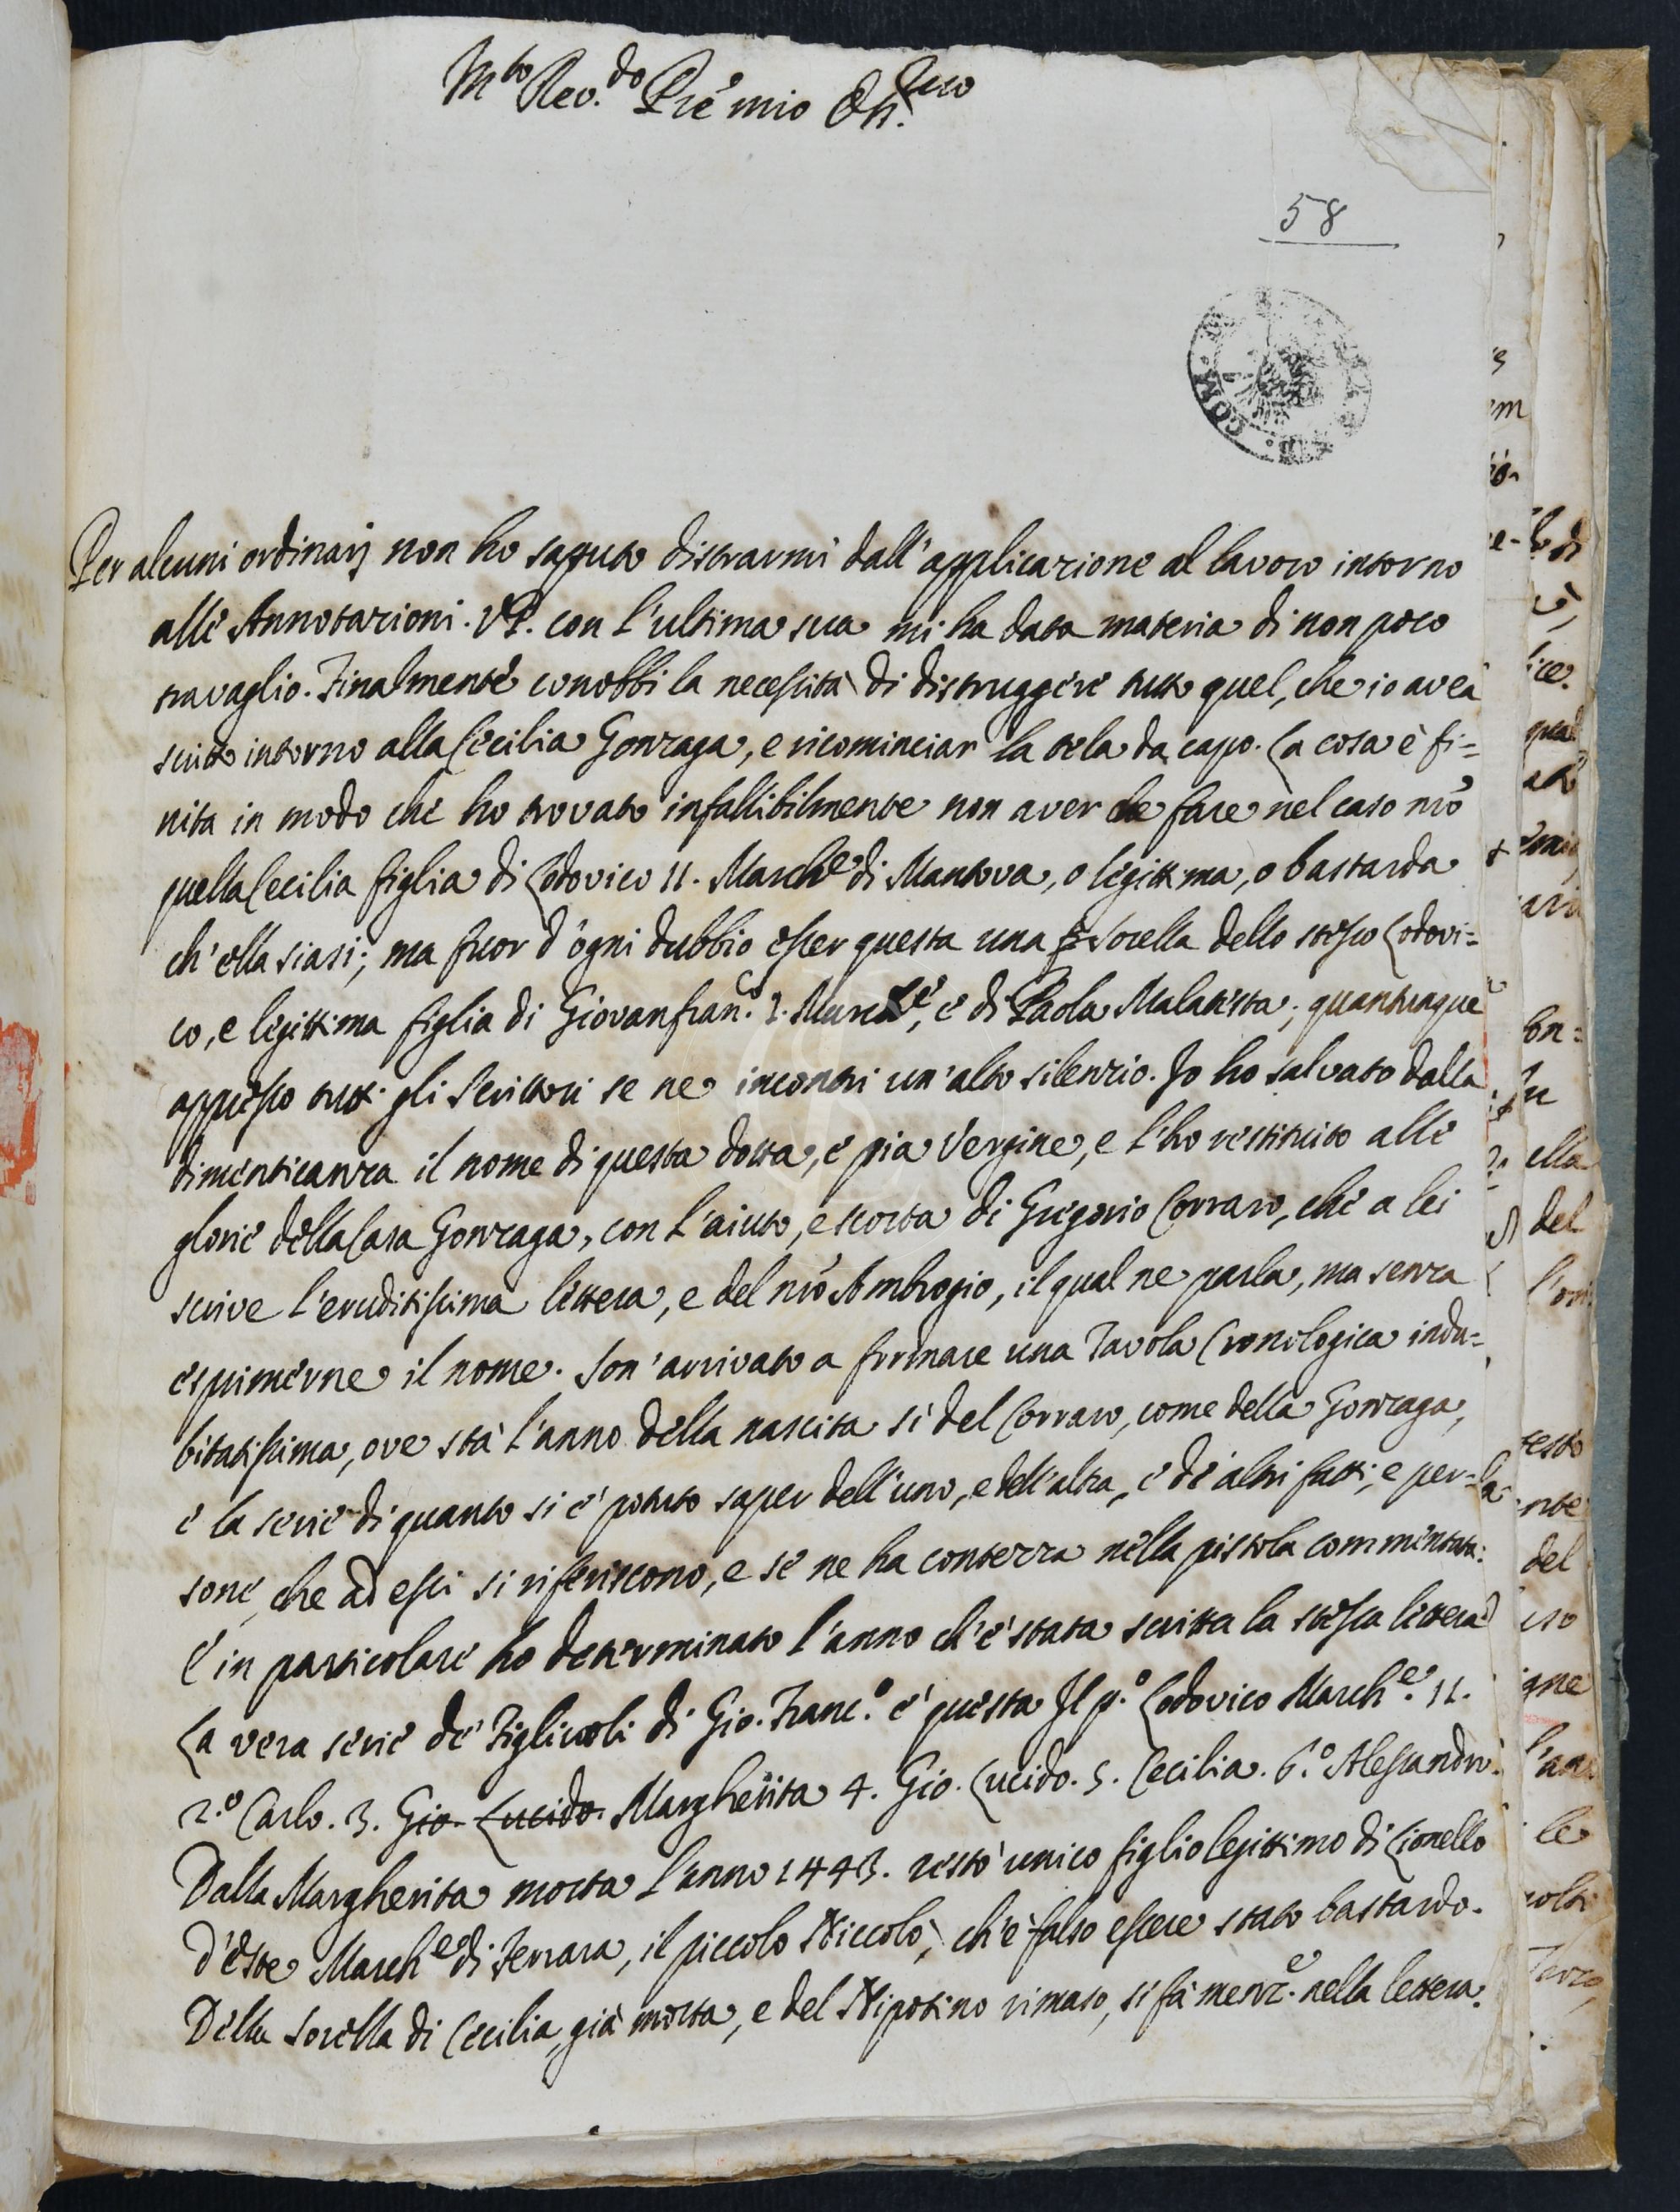 Mto Rev.do Prê mio On.
58
COM
Per alcuni ordinarj non ho saputo distrarmi dall'applicazione al lavoro intorno
alle Annotazioni. VP. con l'ultima sua mi ha data materia di non poco
travaglio. Finalmente conobbi la necessità di distruggere tutto quel, che io avea
scritto intorno alla Cecilia Gonzaga, e ricominciar la tela da capo. La cosa è fi=
nita in modo che ho trovato infallibilmente non aver che fare nel caso nrō
quella Cecilia figlia di Lodovico II. March.e di Mantova, o legittima, o bastarda
ch'ella siasi; ma fuor d'ogni dubbio esser questa una Sorella dello stesso Lodovi=
co, e legittima figlia di Giovanfran.co I. March.e, e di Paola Malatesta; quantunque
appresso tutti gli Scrittori se ne incontri un'alto silenzio. Io ho salvato dalla
dimenticanza il nome di questa dotta, e pia Vergine, e l'ho restituito alle
glorie della Casa Gonzaga, con l'aiuto, e scorta di Gregorio Corraro, che a lei
scrive l'eruditissima lettera, e del nrō Ambrogio, il qual ne parla, ma senza
esprimerne il nome. Son'arrivato a formare una Tavola Cronologica indu=
bitatissima, ove sta l'anno della nascita sì del Corraro, come della Gonzaga,
e la serie di quanto si è potuto saper dell'uno, e dell'altra, e de' altri fatti, e per-
sone, che ad essi si riferiscono, e se ne ha contezza nella pistola commentata:
E in particolare ho determinato l'anno ch'è stata scritta la stessa lettera
La vera serie de' Figliuoli di Gio. Franc.o è questa Il p.o Lodovico March.e II.
2.o Carlo. 3. Gio. Lucido. Margherita 4. Gio. Lucido. 5. Cecilia. 6.o Alessandro.
Dalla Margherita morta l'anno 1443. restò unico figlio legittimo di Lionello
d'Este March.e di Ferrara, il piccolo Niccolò, ch'è falso essere stato bastardo.
Della Sorella di Cecilia già morta, e del Nipotino rimaso, si fà menz.e nella lettera.